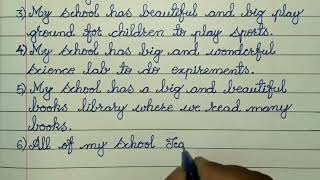 3) My school has beautiful and big play
ground for children to play sports.
4) My school has big and wonderful
science lab to do expirements.
5) My school has a big and beautiful
books library where we read many
books.
6) All of my school Tea